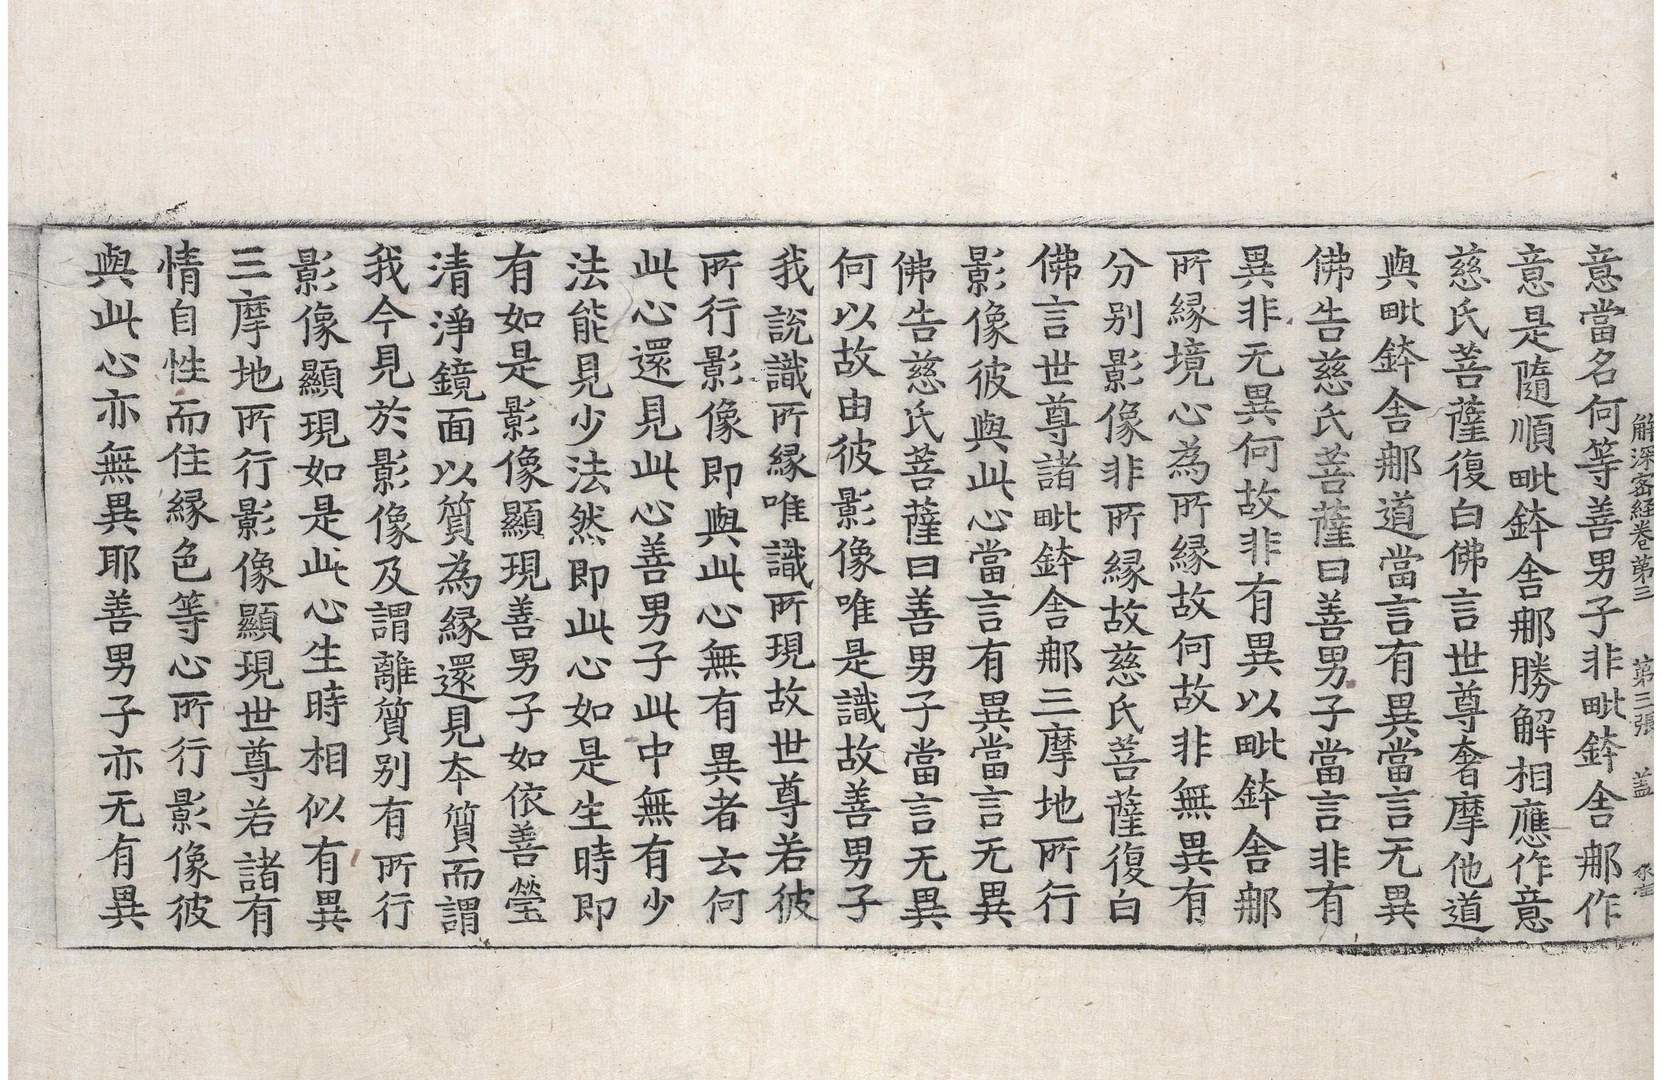 解深密經卷第三 第三張 盖
意當名何等善男子非毗鉢舍𨚗作
意是隨順毗鉢舍𨚗勝解相應作意
慈氏菩薩復白佛言世尊奢摩他道
與毗鉢舍𨚗道當言有異當言无異
佛告慈氏菩薩曰善男子當言非有
異非无異何故非有異以毗鉢舍𨚗
所縁境心為所縁故何故非無異有
分別影像非所縁故慈氏菩薩復白
佛言世尊諸毗鉢舍𨚗三摩地所行
影像彼與此心當言有異當言无異
佛告慈氏菩薩曰善男子當言无異
何以故由彼影像唯是識故善男子
我說識所縁唯識所現故世尊若彼
所行影像即與此心無有異者云何
此心還見此心善男子此中無有少
法能見少法然即此心如是生時即
有如是影像顯現善男子如依善瑩
清淨鏡面以質為縁還見本質而謂
我今見於影像及謂離質別有所行
影像顯現如是此心生時相似有異
三摩地所行影像顯現世尊若諸有
情自性而住縁色等心所行影像彼
與此心亦無異耶善男子亦无有異